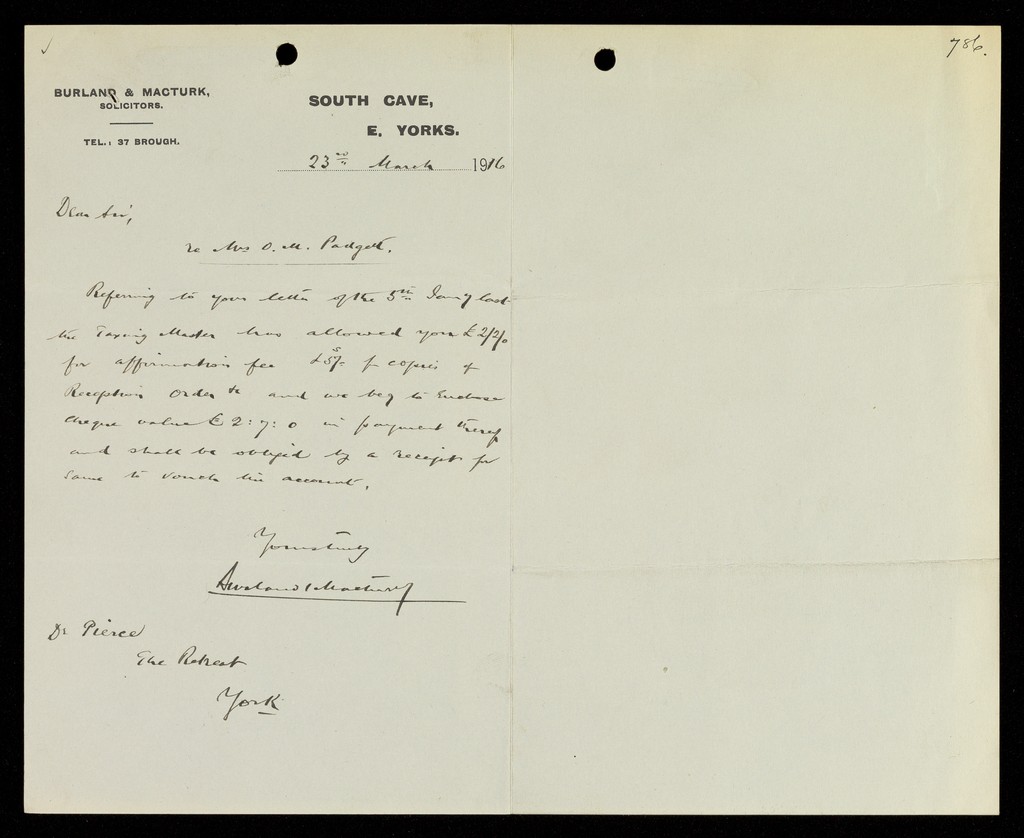 786.
BURLAND & MACTURK,
SOLICITORS.
TEL.: 37 BROUGH.
SOUTH CAVE,
E. YORKS.
23rd March 1916
Dear Sir,
re Mrs O. M. Padgett.
Referring to your letter of the 5th Jany last
the Taxing Master has allowed you £2/2/0
for affirmation fee & 5/- for copies of
Reception Order &c and we beg to enclose
cheque value £2:7:0 in payment thereof
and shall be obliged by a receipt for
same to vouch the account.
Yours truly
Burland & Macturk
Dr Pierce
The Retreat
York